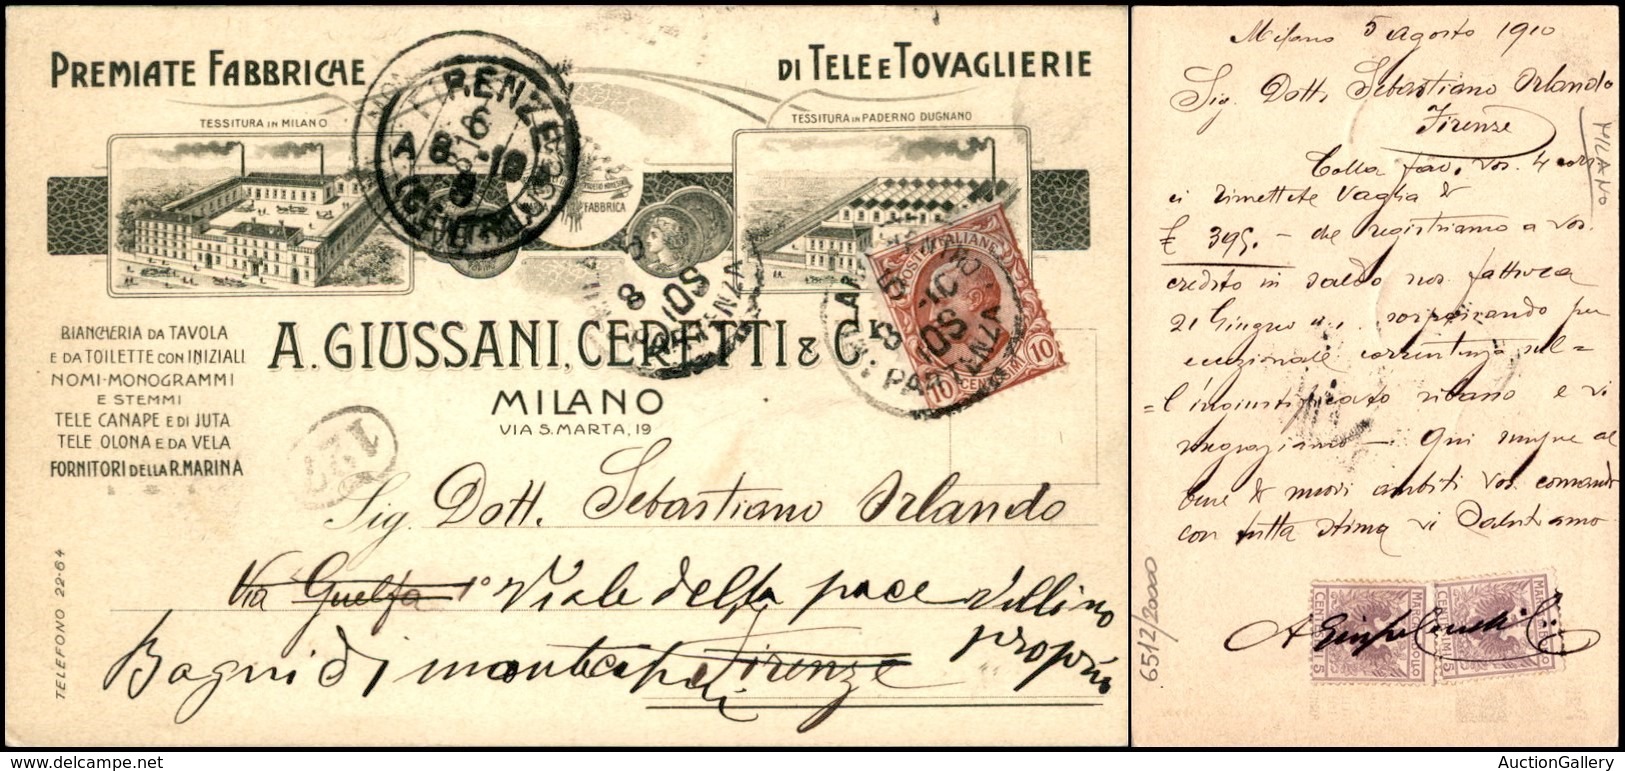 PREMIATE FABBRICHE
DI TELE E TOVAGLIERIE
TESSITURA IN MILANO
TESSITURA IN PADERNO DUGNANO
FIRENZE
8-10
FABBRICA
POSTE ITALIANE
10 CENTESIMI 10
PARTENZA
PARTENZA
BIANCHERIA DA TAVOLA
E DA TOILETTE CON INIZIALI
NOMI-MONOGRAMMI
E STEMMI
TELE CANAPE E DI JUTA
TELE OLONA E DA VELA
FORNITORI DELLA R. MARINA
A. GIUSSANI, CERETTI & C.
MILANO
VIA S. MARTA, 19
127
Sig. Dott. Sebastiano Orlando
Via Guelfa 1° Viale della pace Villino
proprio
Bagni di montecatini Firenze
TELEFONO 22-64
Milano 5 Agosto 1910
Sig. Dott. Sebastiano Orlando
Firenze
MILANO
Colla fav. vos. 4 corr.
ci rimettete Vaglia di
£ 395.- che registriamo a vos.
credito in saldo nos. fattura
21 Giugno sorpassando per
eccezionale correntezza sul=
=l'ingiustificato ribasso e vi
ringraziamo - Qui sempre al
bene di nuovi ambiti vos. comandi
con tutta stima vi salutiamo
MARCA DA BOLLO
CENTESIMI 5
MARCA DA BOLLO
CENTESIMI 5
6512/20000
AuctionGallery
delcampe.net